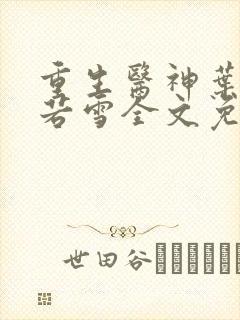 重生醫神葉
若雪全文免
世田谷